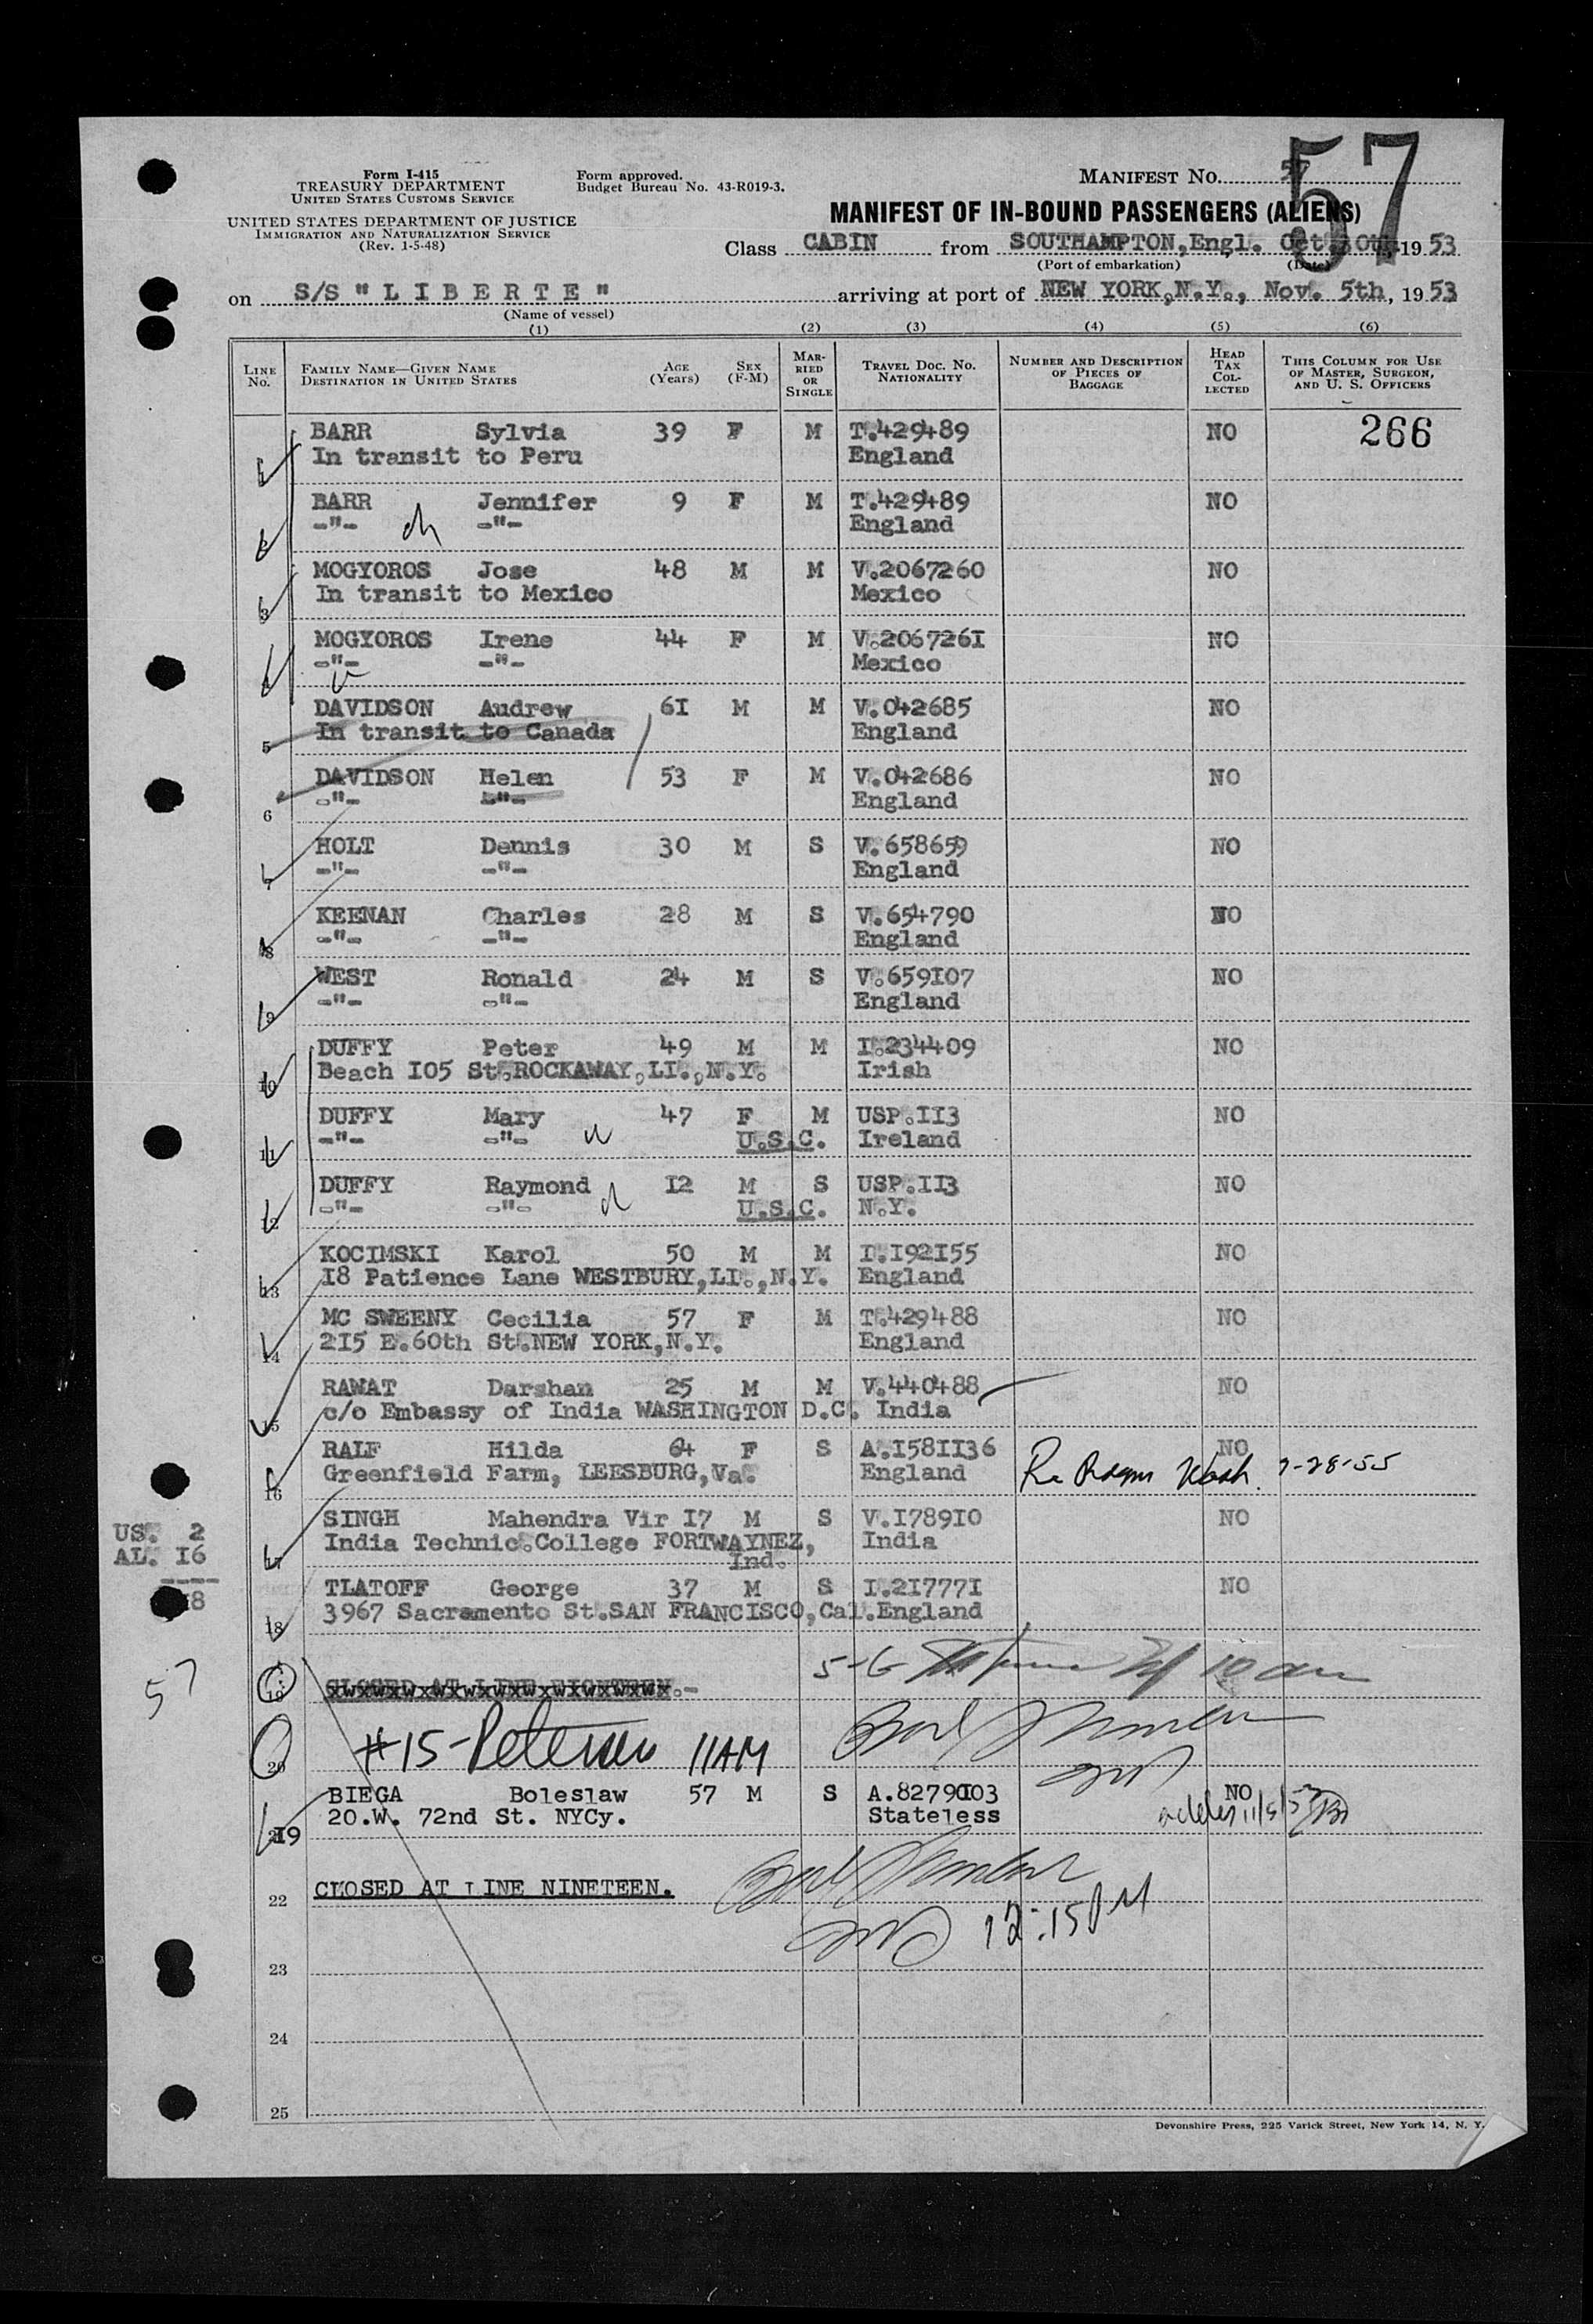 57
Form I-415
TREASURY DEPARTMENT
UNITED STATES CUSTOMS SERVICE
UNITED STATES DEPARTMENT OF JUSTICE
IMMIGRATION AND NATURALIZATION SERVICE
(Rev. 1-5-48)
Form approved.
Budget Bureau No. 43-R019-3.
MANIFEST NO. 57
MANIFEST OF IN-BOUND PASSENGERS (ALIENS)
Class CABIN from SOUTHAMPTON,Engl. Oct. 1953
(Port of embarkation) (Date)
on S/S "LIBERTE" arriving at port of NEW YORK,N.Y., Nov. 5th, 1953
(Name of vessel)
(1) (2) (3) (4) (5) (6)
LINE NO. FAMILY NAME—GIVEN NAME DESTINATION IN UNITED STATES AGE (YEARS) SEX (F-M) MARRIED OR SINGLE TRAVEL DOC. NO. NATIONALITY NUMBER AND DESCRIPTION OF PIECES OF BAGGAGE HEAD TAX COLLECTED THIS COLUMN FOR USE OF MASTER, SURGEON, AND U. S. OFFICERS
BARR Sylvia 39 F M T.429489 NO 266
1 In transit to Peru England
BARR Jennifer 9 F M T.429489 NO
2 -"- ch -"- England
MOGYOROS Jose 48 M M V.2067260 NO
3 In transit to Mexico Mexico
MOGYOROS Irene 44 F M V.206726I NO
4 -"- -"- Mexico
DAVIDSON Audrew 6I M M V.042685 NO
5 In transit to Canada England
DAVIDSON Helen 53 F M V.042686 NO
6 -"- -"- England
HOLT Dennis 30 M S V.658659 NO
7 -"- -"- England
KEENAN Charles 28 M S V.654790 NO
8 -"- -"- England
WEST Ronald 24 M S V.659I07 NO
9 -"- -"- England
DUFFY Peter 49 M M I.234409 NO
10 Beach I05 St.ROCKAWAY,LI.,N.Y. Irish
DUFFY Mary 47 F M USP.II3 NO
11 -"- -"- U.S.C. Ireland
DUFFY Raymond I2 M S USP.II3 NO
12 -"- -"- U.S.C. N.Y.
KOCIMSKI Karol 50 M M I.I92I55 NO
13 I8 Patience Lane WESTBURY,LI.,N.Y. England
MC SWEENY Cecilia 57 F M T.429488 NO
14 2I5 E.60th St.NEW YORK,N.Y. England
RAWAT Darshan 25 M M V.440488 NO
15 c/o Embassy of India WASHINGTON D.C. India
RALF Hilda 64 F S A.I58II36 NO
16 Greenfield Farm, LEESBURG,Va. England Wash. 7-28-55
SINGH Mahendra Vir I7 M S V.I789I0 NO
17 India Technic.College FORTWAYNEZ, India
Ind.
US. 2
AL. I6
----
I8
TLATOFF George 37 M S I.2I777I NO
18 3967 Sacramento St.SAN FRANCISCO,Cal.England
57
19 CLOSED AT LINE EIGHTEEN.- 10 am
20 #15-Petersen 11AM
BIEGA Boleslaw 57 M S A.8279003 NO
19 20.W. 72nd St. NYCy. Stateless
22 CLOSED AT LINE NINETEEN.
12:15 PM
23
24
25
Devonshire Press, 225 Varick Street, New York 14, N. Y.